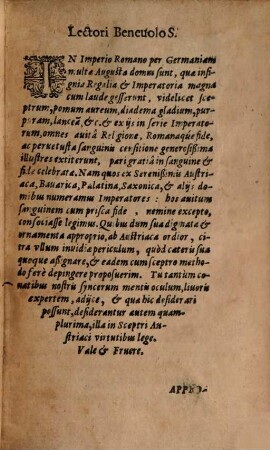 Lectori Beneuolo S.
IN Imperio Romano per Germaniam
multæ Augustæ domus sunt, quæ insi-
gnia Regalia & Imperatoria magna
cum laude gesserunt, videlicet sce-
ptrum, pomum aureum, diadema gladium, pur-
puram, lanceã, & c. & ex ijs in serie Imperato-
rum, omnes auitâ Religione, Romanaque fide,
ac peruetusta sanguinis cersitione generosissima
illustres extiterunt, pari gratiâ in sanguine &
fide celebratæ. Nam quos ex Serenissimis Austri-
aca, Bauarica, Palatina, Saxonica, & alijs do-
mibus numeramus Imperatores : hos auitum
sanguinem cum prisca fide, nemine excepto,
consociasse legimus. Quibus dum sua dignata &
ornamenta approprio, ab Austriaca ordior, ci-
tra vllum inuidiæ periculum, quòd cæteris sua
quoque assignare, & eadem cum sceptro metho-
do ferè depingere proposuerim. Tu tantùm co-
natibus nostris syncerum mentis oculum, liuoris
expertem, adijce, & quæ hic desiderari
possunt, desiderantur autem quam-
plurima, illa in Sceptri Au-
striaci virtutibus lege.
Vale & Fruere.
APPRO-